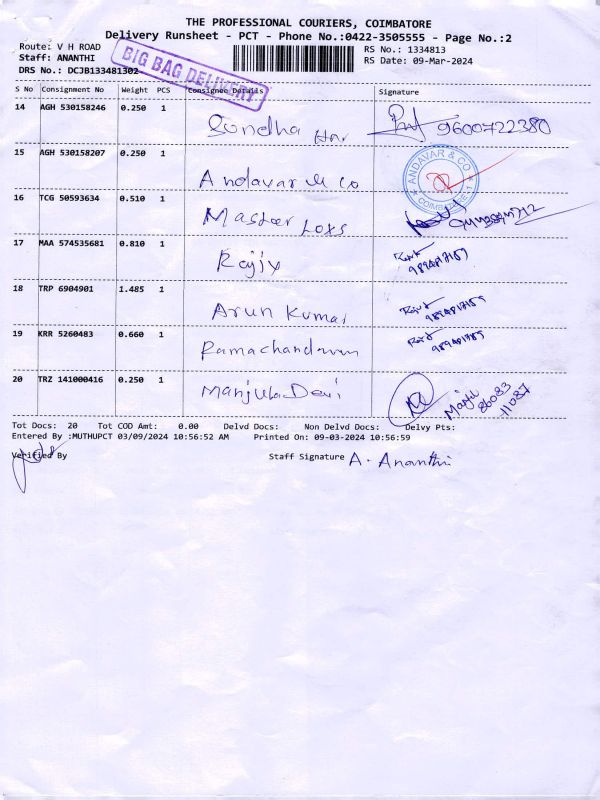 THE PROFESSIONAL COURIERS, COIMBATORE
Delivery Runsheet - PCT - Phone No.:0422-3505555 - Page No.:2
Route: V H ROAD
RS No.: 1334813
Staff: ANANTHI
RS Date: 09-Mar-2024
DRS No.: DCJB133481302
BIG BAG DELIVERY
S No Consignment No Weight PCS Consignee Details Signature
14 AGH 530158246 0.250 1 Sondha 9600722380
15 AGH 530158207 0.250 1 Andavar & Co
ANDAVAR & CO
COIMBATORE - 1
16 TCG 50593634 0.510 1 Master
17 MAA 574535681 0.810 1
18 TRP 6904901 1.485 1 Arun Kumar
19 KRR 5260483 0.660 1
20 TRZ 141000416 0.250 1 Manjula Devi
86083
11087
Tot Docs: 20 Tot COD Amt: 0.00 Delvd Docs: Non Delvd Docs: Delvy Pts:
Entered By :MUTHUPCT 03/09/2024 10:56:52 AM Printed On: 09-03-2024 10:56:59
Verified By Staff Signature A. Ananthi